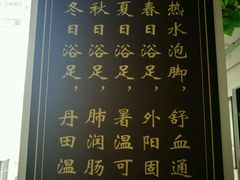 热水泡脚，舒血通
春日浴足，外阳固
夏日浴足，暑温可
秋日浴足，肺润肠
冬日浴足，丹田温